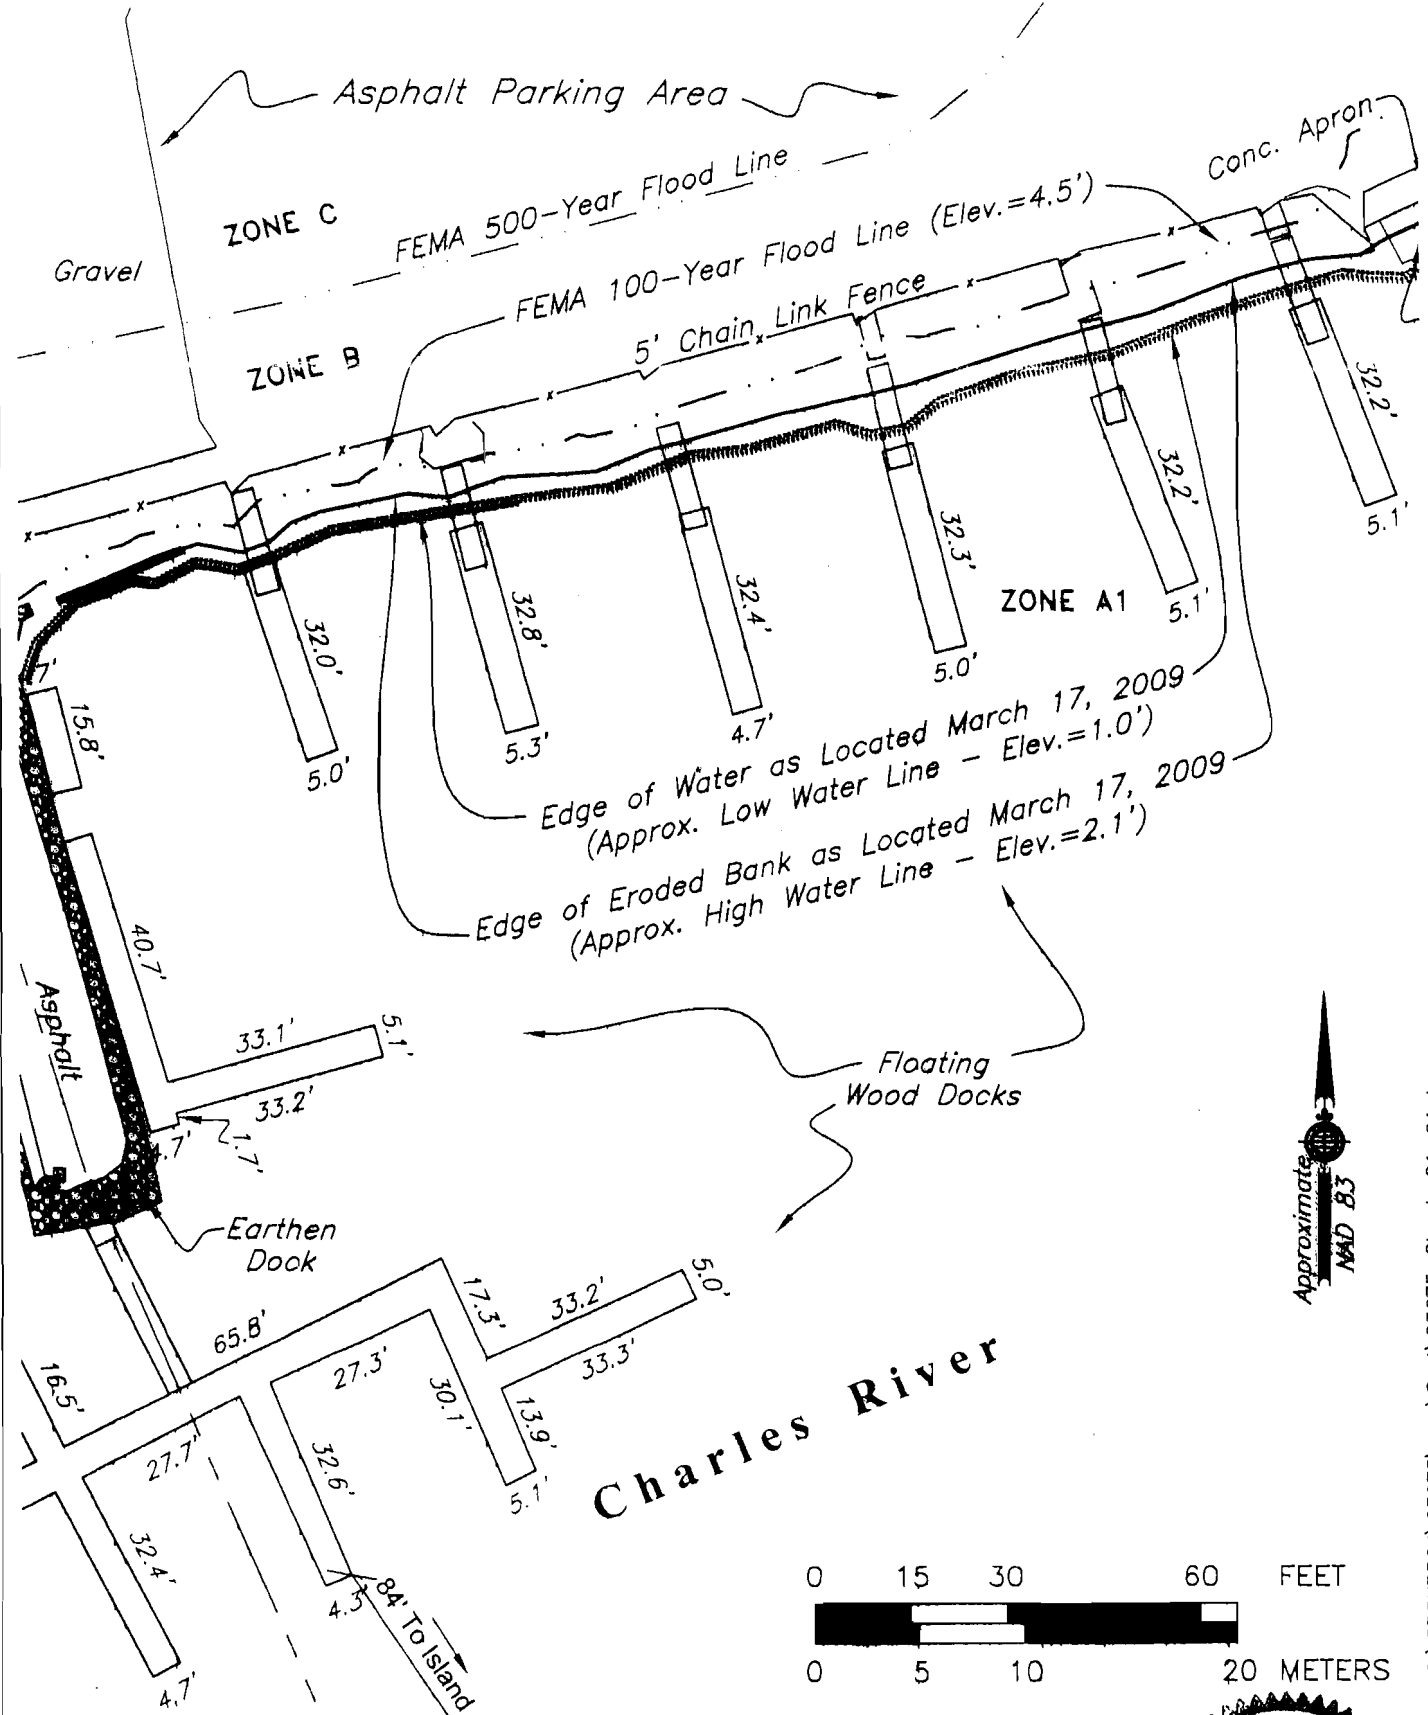 Asphalt Parking Area
Conc. Apron
ZONE C
FEMA 500-Year Flood Line
Gravel
FEMA 100-Year Flood Line (Elev.=4.5')
5' Chain Link Fence
ZONE B
x
x
x
x
x
x
x
32.2'
5.1'
32.2'
5.1'
32.3'
5.0'
ZONE A1
32.4'
4.7'
32.8'
5.3'
32.0'
5.0'
7'
15.8'
Edge of Water as Located March 17, 2009
(Approx. Low Water Line - Elev.=1.0')
Edge of Eroded Bank as Located March 17, 2009
(Approx. High Water Line - Elev.=2.1')
40.7'
Asphalt
33.1'
5.1'
33.2'
.7'
1.7'
Floating
Wood Docks
Earthen
Dock
Approximate
NAD 83
65.8'
17.3'
33.2'
5.0'
33.3'
27.3'
30.1'
13.9'
5.1'
16.5'
27.7'
32.6'
32.4'
4.3'
4.7'
84' To Island
Charles River
0 15 30 60 FEET
0 5 10 20 METERS